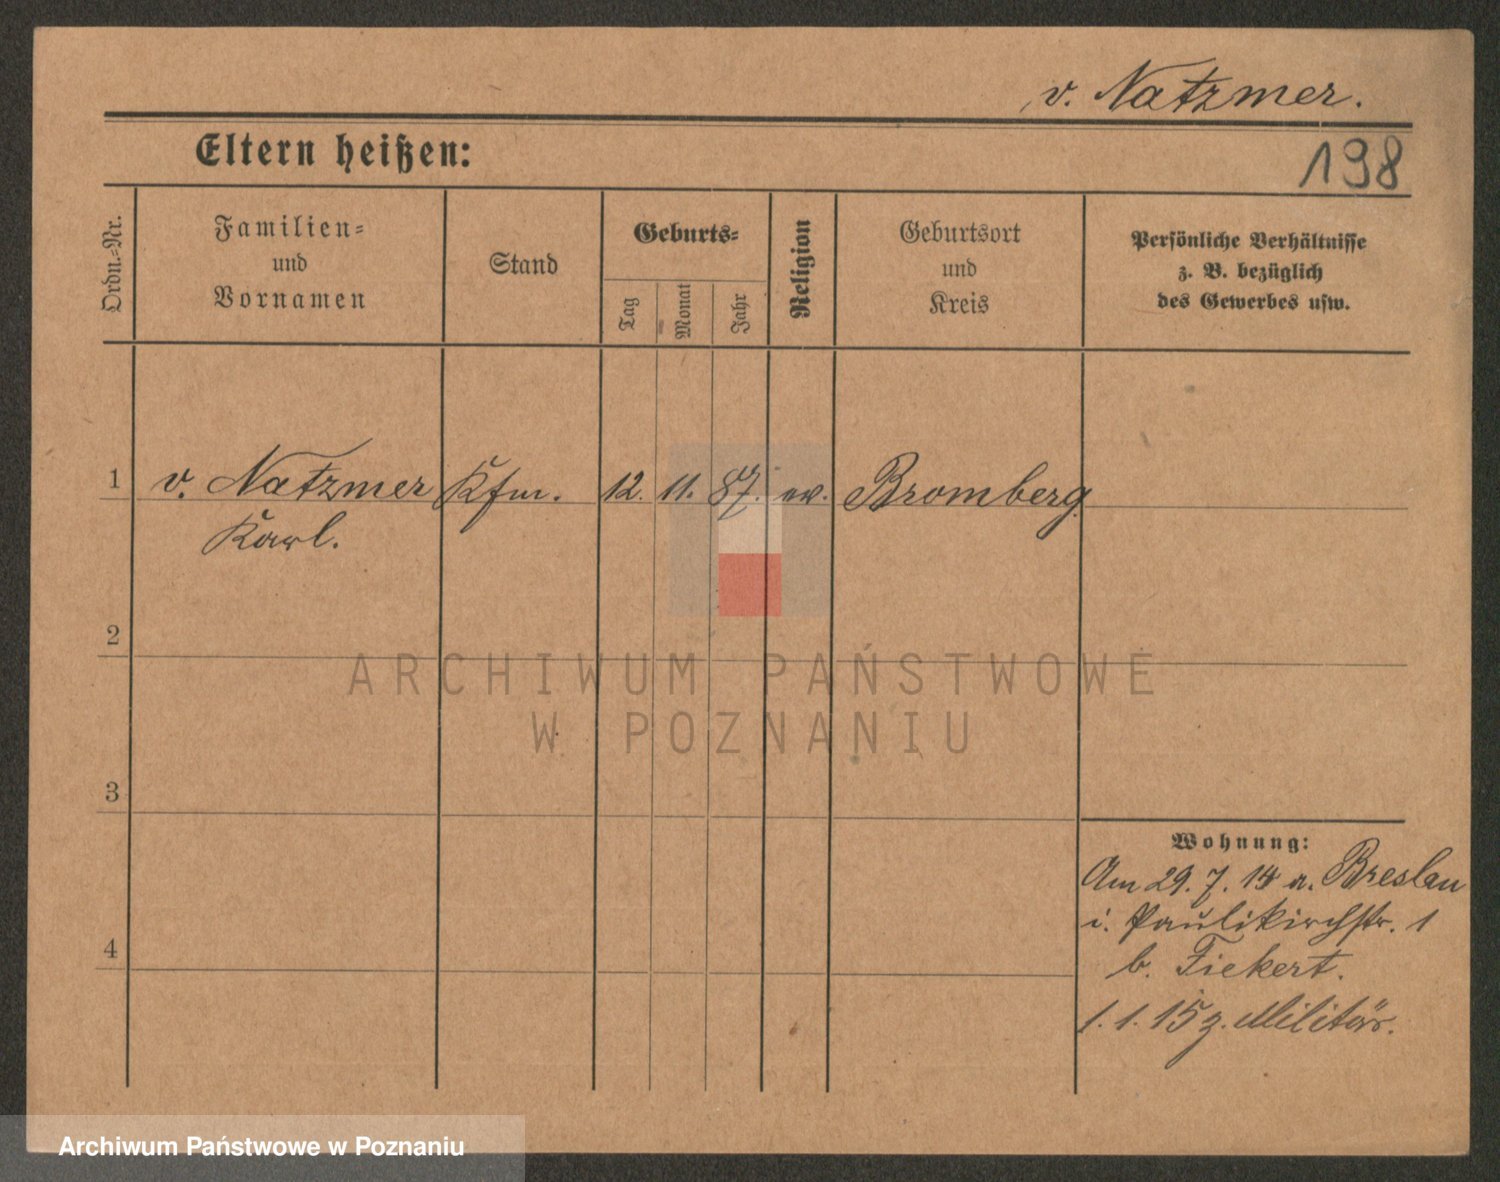 v. Natzmer.
Eltern heißen:
198
Ordn.-Nr.
Familien-
und
Vornamen
Stand
Geburts-
Tag
Monat
Jahr
Religion
Geburtsort
und
Kreis
Persönliche Verhältnisse
z. B. bezüglich
des Gewerbes usw.
1
v. Natzmer Kfm. 12. 11. 87. ev. Bromberg
Karl.
2
ARCHIWUM PAŃSTWOWE
W POZNANIU
3
Wohnung:
Am 29. 7. 14 a. Breslau
i. Paulikirchstr. 1
b. Fiekert.
4
1. 1. 15 z. Militär.
Archiwum Państwowe w Poznaniu